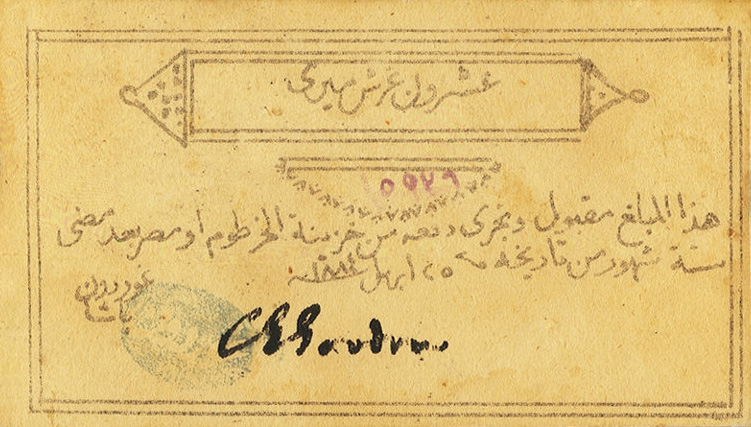 عشرون غرش ميري
٥٥٧٦
هذا المبلغ مقبول ويجري دفعه من خزينة الخرطوم او مصر بعد مضى
ستة شهور من تاريخه ٢٥ ابريل ١٨٨٤
غوردون
باشا
C G Gordon